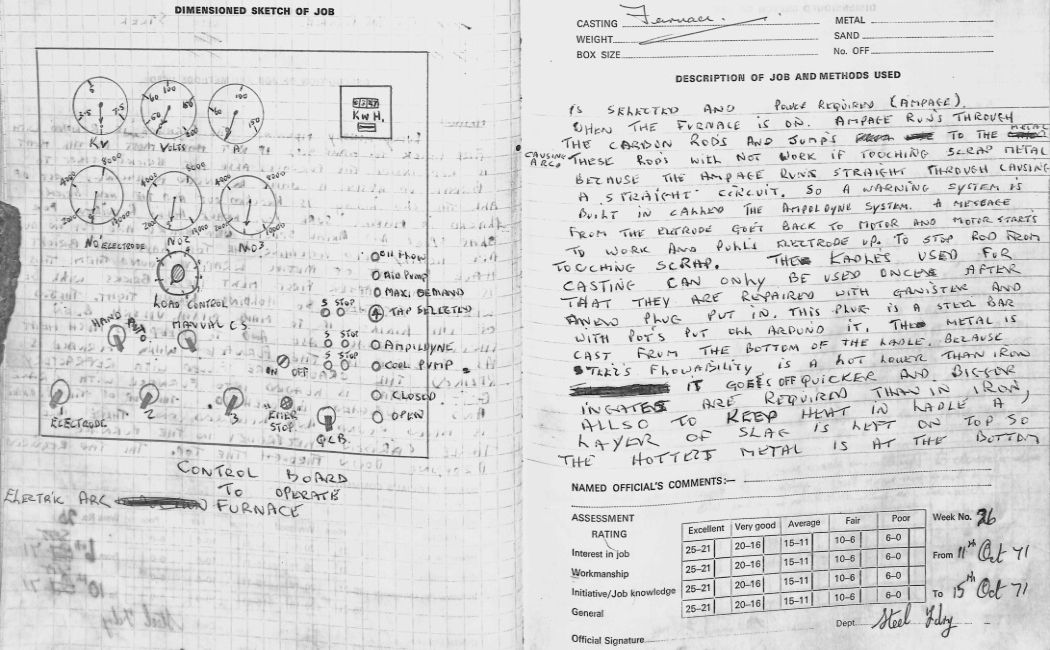 DIMENSIONED SKETCH OF JOB
2.5 5 7.5
KV
50 60 100 150 200
VOLTS
50 100 150
A
5257
KWH.
2000 4000 8000 10000
NO1 ELECTRODE
NO2
NO3
LOAD CONTROL
HAND AUT.
MANUAL C S
OIL FLOW
AIR PUMP
MAX. DEMAND
S STOP
TAP SELECTED
S STOP
AMPILDYNE
S STOP
COOL PUMP
ON OFF
CLOSED
OPEN
1 2 3
ELECTRODE
EMER STOP
O.C.B.
CONTROL BOARD
TO OPERATE
ELECTRIC ARC FURNACE
CASTING Furnace.
METAL
WEIGHT
SAND
BOX SIZE
No. OFF
DESCRIPTION OF JOB AND METHODS USED
IS SELECTED AND POWER REQUIRED (AMPAGE).
WHEN THE FURNACE IS ON. AMPAGE RUN'S THROUGH
THE CARBON RODS AND JUMPS TO THE METAL
CAUSING ARC. THESE RODS WILL NOT WORK IF TOUCHING SCRAP METAL
BECAUSE THE AMPAGE RUNS STRAIGHT THROUGH CAUSING
A STRAIGHT CIRCUIT. SO A WARNING SYSTEM IS
BUILT IN CALLED THE AMPOLDYNE SYSTEM. A MESSAGE
FROM THE ELETRODE GOES BACK TO MOTOR AND MOTOR STARTS
TO WORK AND PULLS ELECTRODE UP. TO STOP ROD FROM
TOUCHING SCRAP. THE LADLES USED FOR
CASTING CAN ONLY BE USED ONCE AFTER
THAT THEY ARE REPAIRED WITH GANISTER AND
A NEW PLUG PUT IN. THIS PLUG IS A STEEL BAR
WITH POT'S PUT ALL AROUND IT. THE METAL IS
CAST FROM THE BOTTOM OF THE LADLE. BECAUSE
STEEL'S FLOWABILITY IS A LOT LOWER THAN IRON
IT GOES OFF QUICKER AND BIGGER
INGATES ARE REQUIRED THAN IN IRON,
ALLSO TO KEEP HEAT IN LADLE A
LAYER OF SLAG IS LEFT ON TOP SO
THE HOTTEST METAL IS AT THE BOTTOM
NAMED OFFICIAL'S COMMENTS:—
ASSESSMENT RATING
Excellent Very good Average Fair Poor
Interest in job 25–21 20–16 15–11 10–6 6–0
Workmanship 25–21 20–16 15–11 10–6 6–0
Initiative/Job knowledge 25–21 20–16 15–11 10–6 6–0
General 25–21 20–16 15–11 10–6 6–0
Week No. 26
From 11th Oct 71
To 15th Oct 71
Dept. Steel Fdry
Official Signature